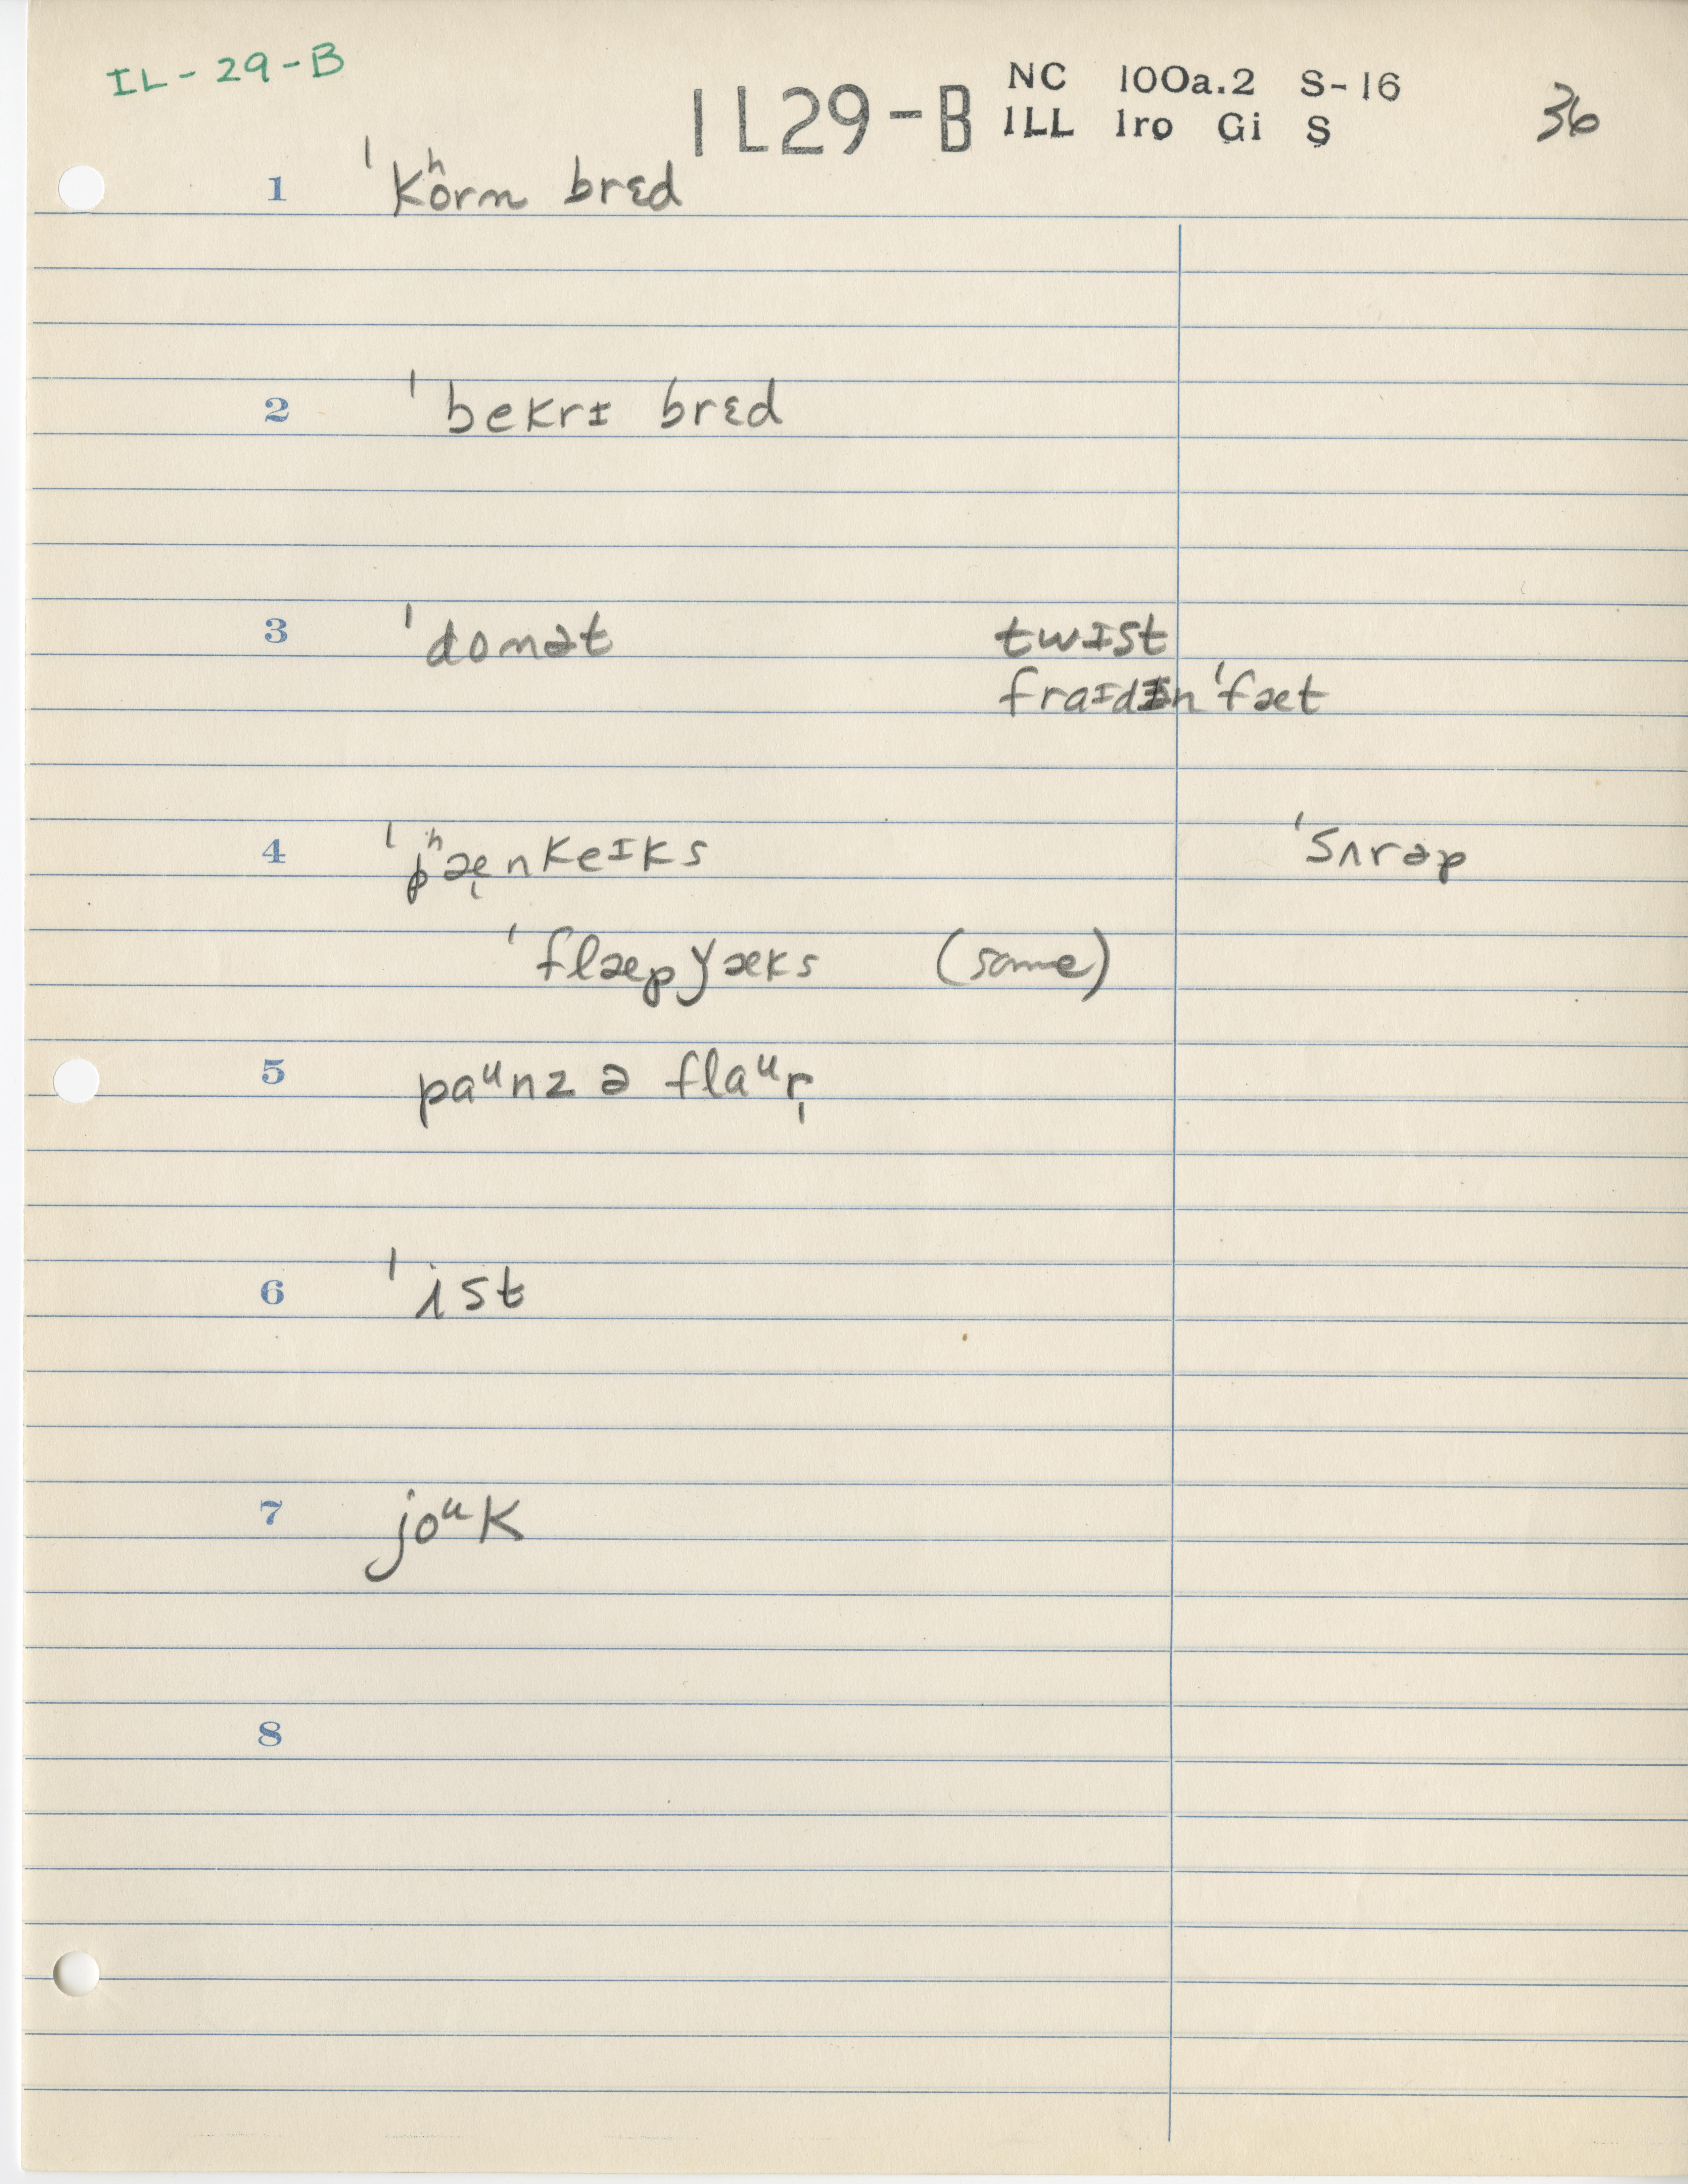 IL-29-B
IL29-B NC 100a.2 S-16
ILL Iro Gi S
36
1 ˈkʰôrn brɛd
2 ˈbekrɪ brɛd
3 ˈdonət twɪst
fraɪdən ˈfæt
4 ˈpʰæ̨nkeɪks ˈsʌrəp
ˈflæpyæks (same)
5 paᵘnz ə flaᵘr̩
6 ˈist
7 joᵘk
8